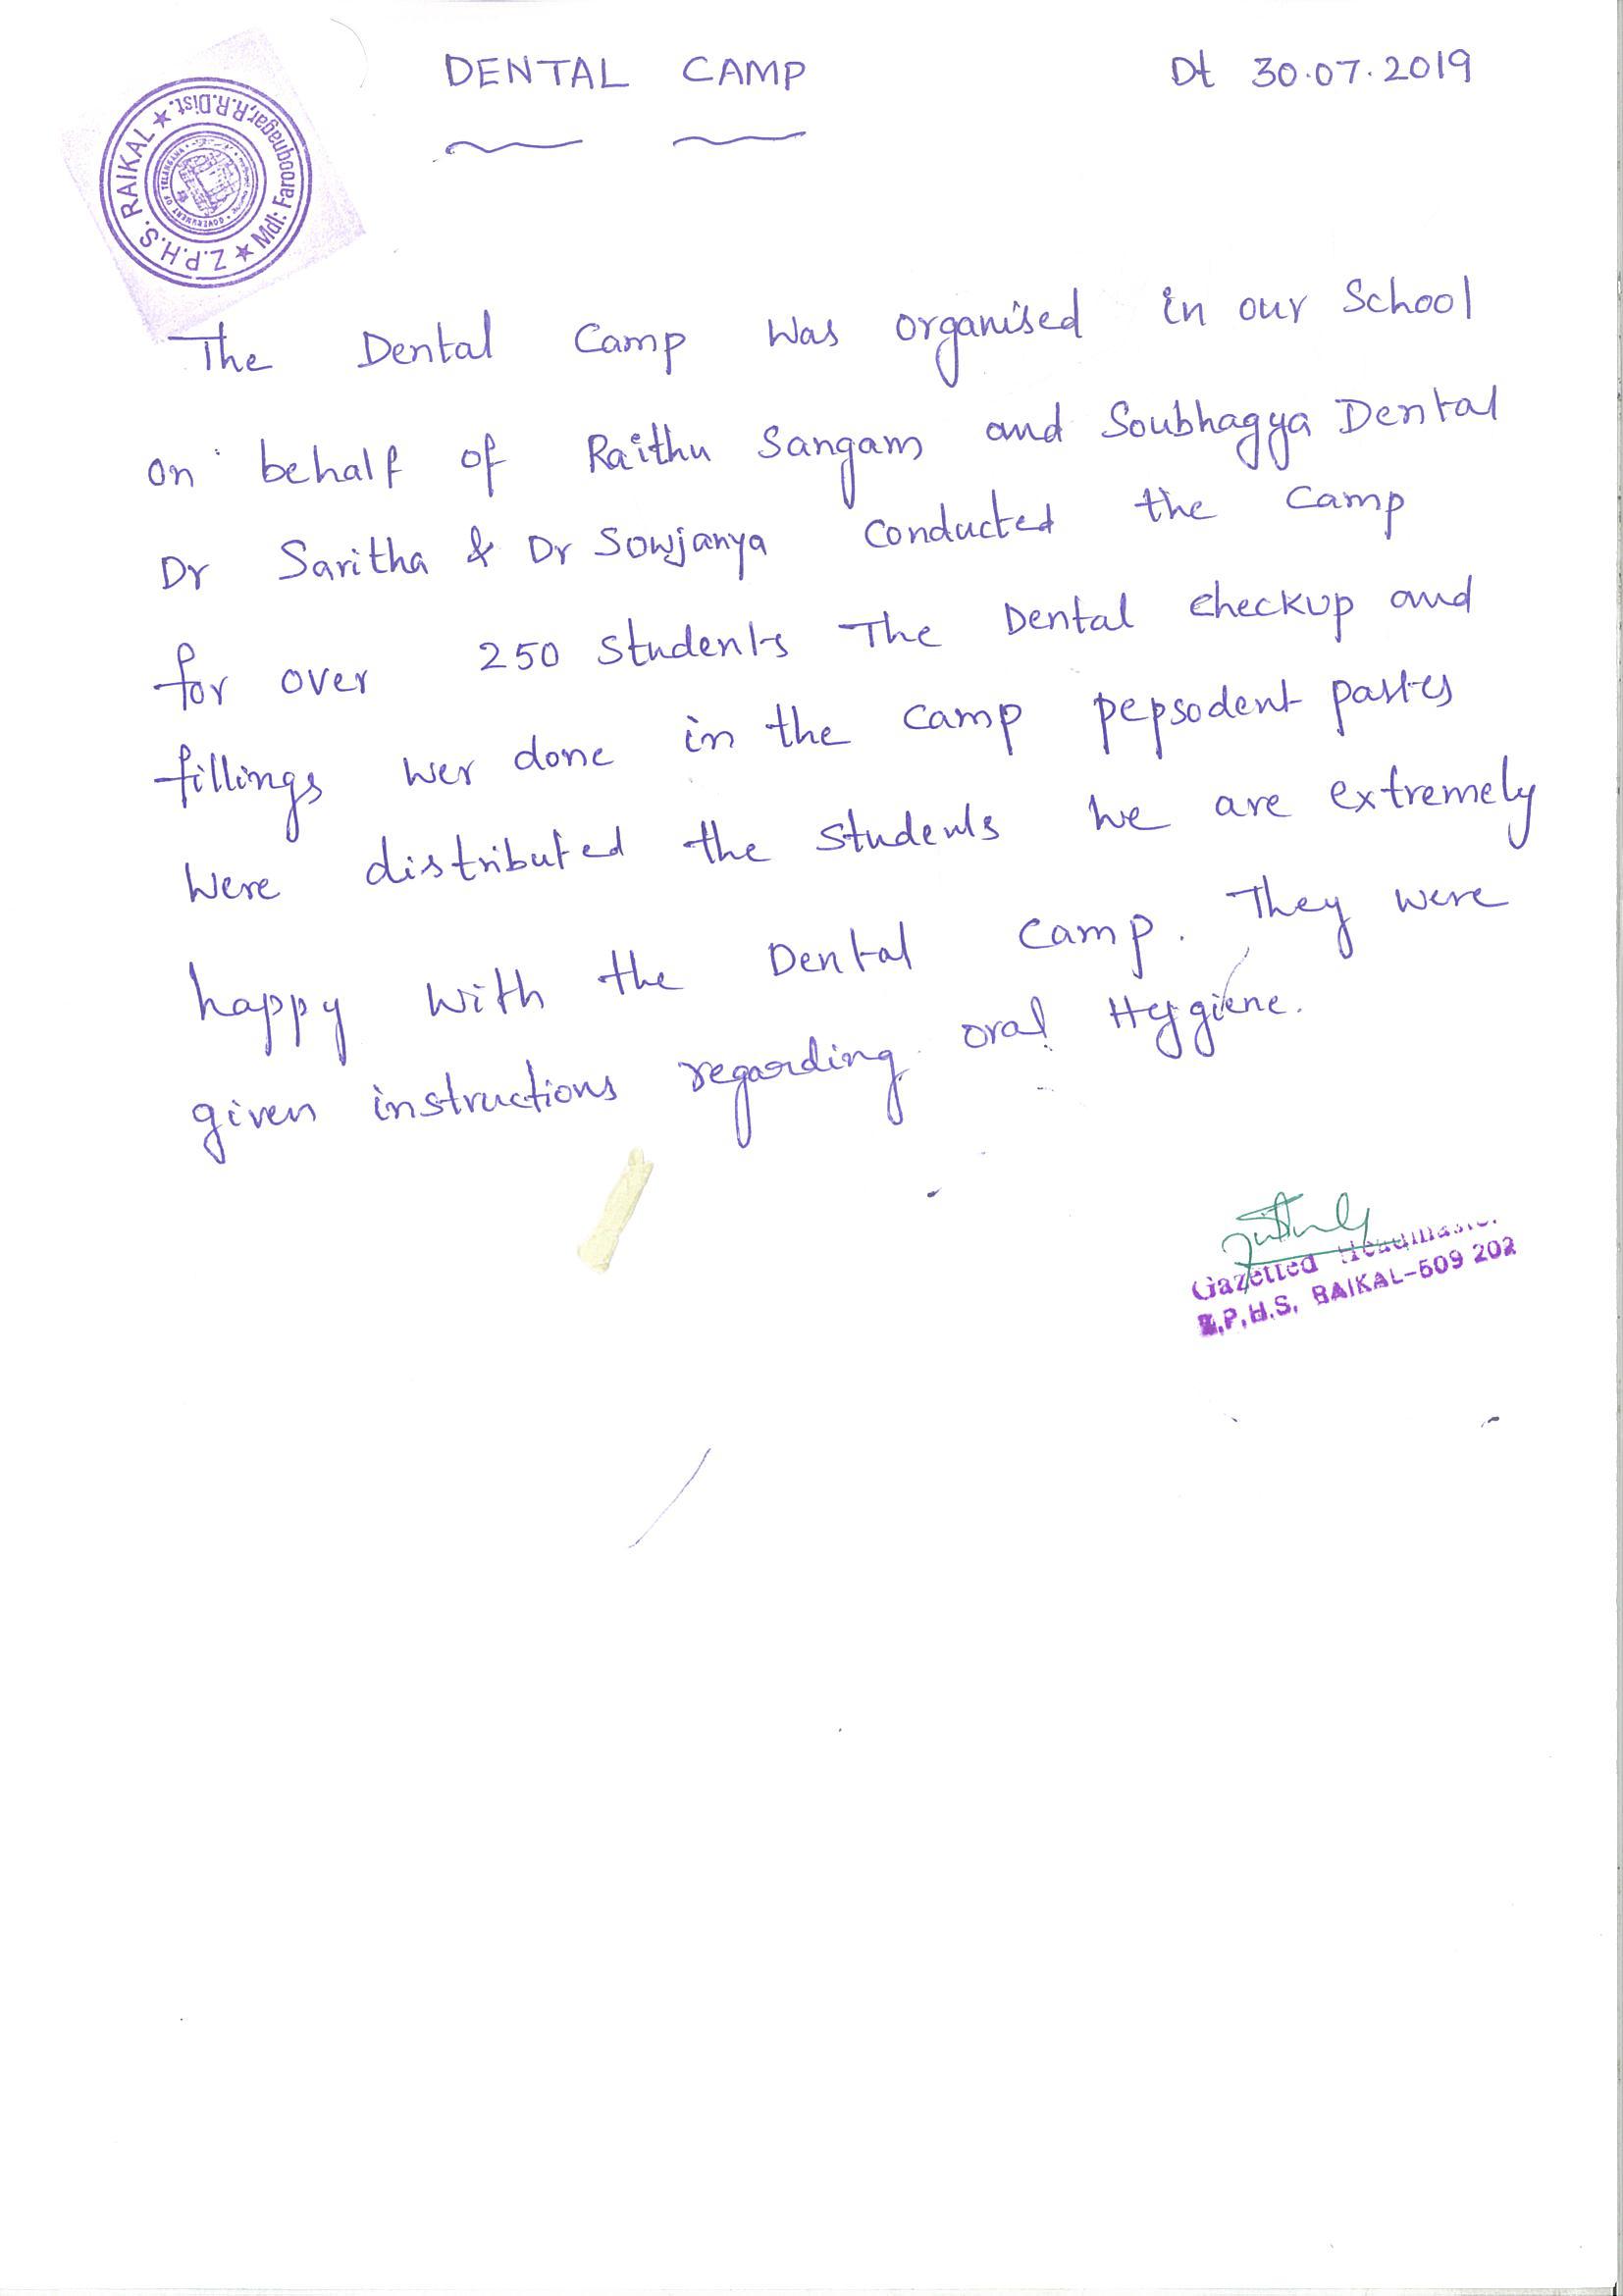 DENTAL CAMP Dt 30.07.2019
Z.P.H.S. RAIKAL ★ Mdl: Farooqnagar, R.R.Dist. ★
GOVERNMENT OF TELANGANA
The Dental Camp Was organised in our School
on behalf of Raithu Sangam and Soubhagya Dental
Dr Saritha & Dr Sowjanya Conducted the Camp
for over 250 Students The Dental checkup and
fillings wer done in the camp pepsodent pastes
Were distributed the students We are extremely
happy With the Dental Camp. They were
given instructions regarding oral Hygiene.
Gazetted Headmaster
Z.P.H.S. RAIKAL-509 202